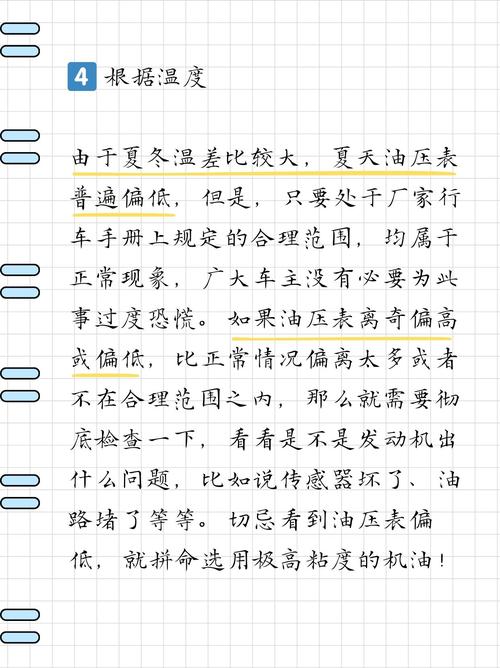 4 根据温度
由于夏冬温差比较大，夏天油压表
普遍偏低，但是，只要处于厂家行
车手册上规定的合理范围，均属于
正常现象，广大车主没有必要为此
事过度恐慌。如果油压表离奇偏高
或偏低，比正常情况偏离太多或者
不在合理范围之内，那么就需要彻
底检查一下，看看是不是发动机出
什么问题，比如说传感器坏了、油
路堵了等等。切忌看到油压表偏
低，就拼命选用极高粘度的机油！